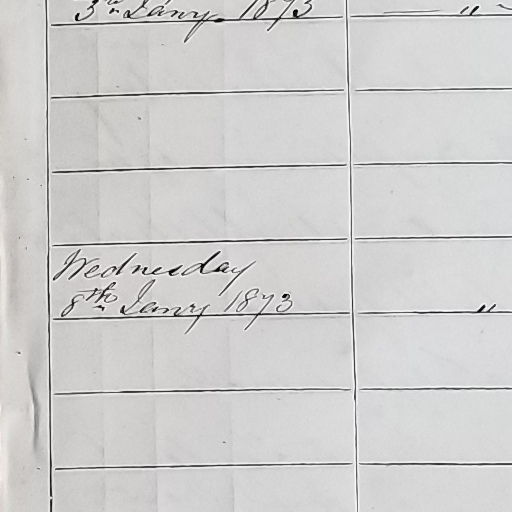 3rd Jany. 1873 — "
Wednesday
8th Jany 1873 — "